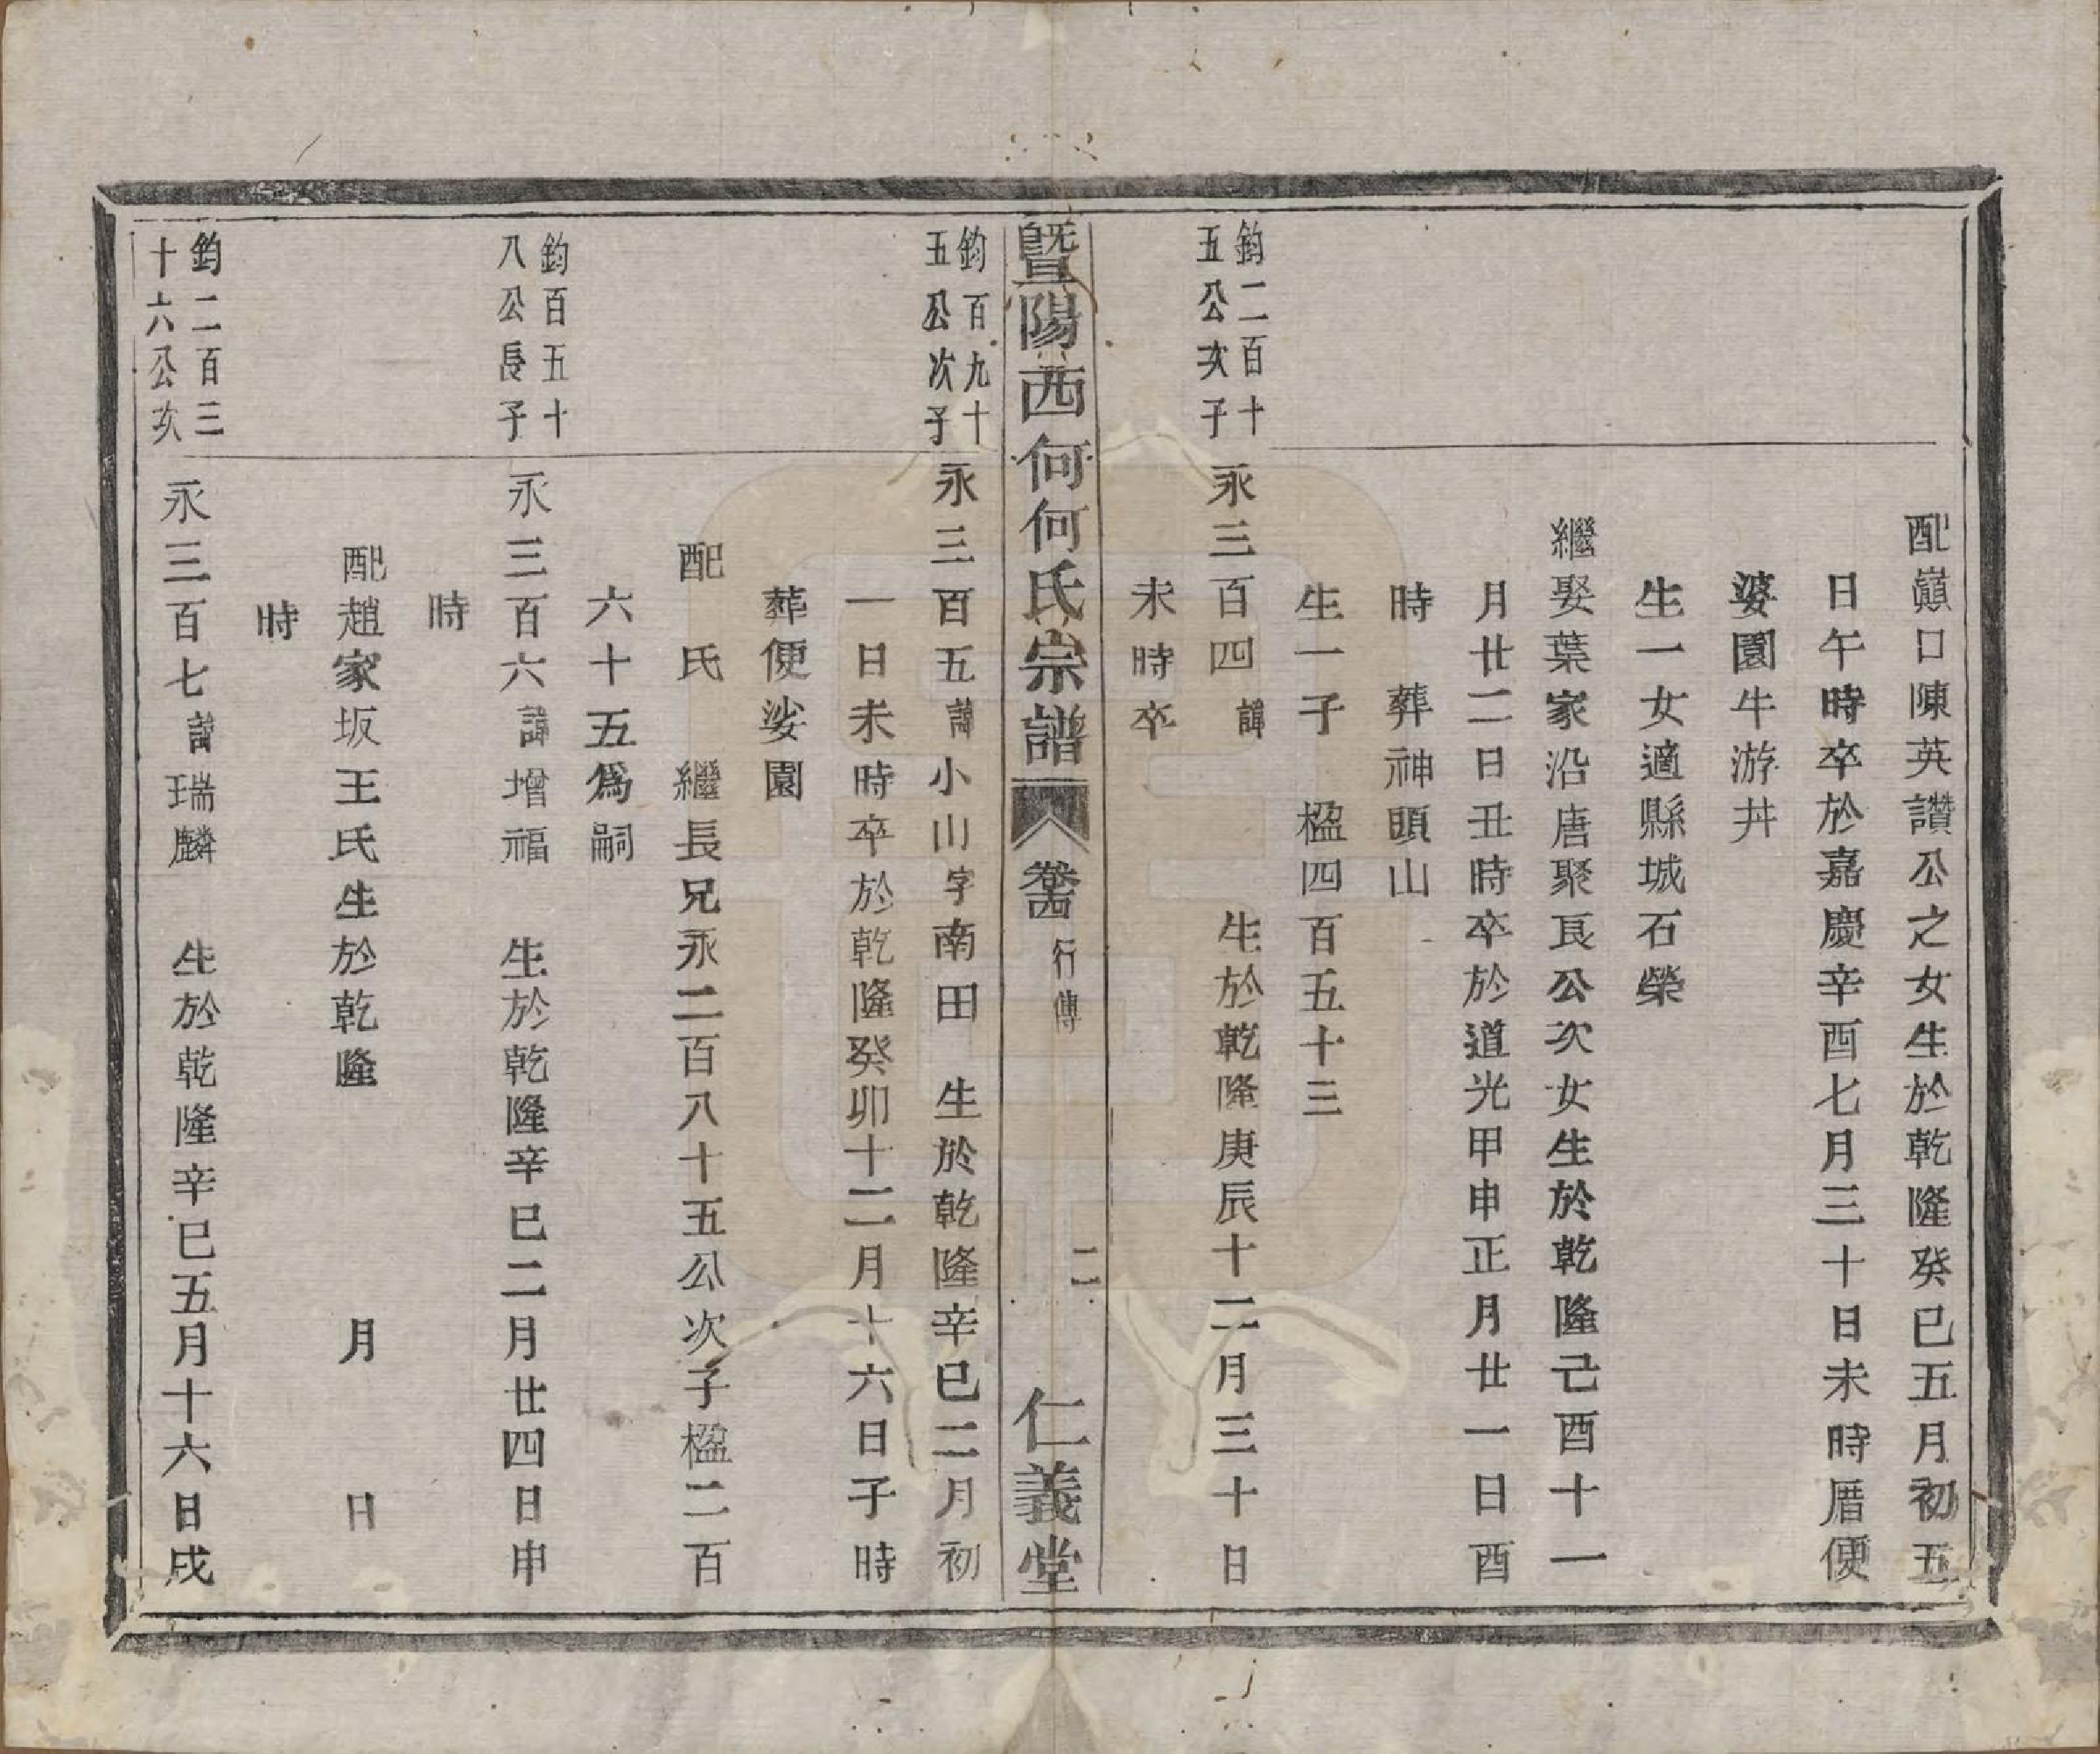 配巔口陳英讃公之女生於乾隆癸巳五月初五
日午時卒於嘉慶辛酉七月三十日未時厝便
婆園牛游丼
生一女適縣城石榮
繼娶葉家沿唐聚良公次女生於乾隆己酉十一
月廿二日丑時卒於道光甲申正月廿一日酉
時　葬神頭山
生一子　楹四百五十三
鈞二百十
五公次子
永三百四諱　生於乾隆庚辰十二月三十日
未時卒
暨陽西何何氏宗譜　卷四　行傳　二　仁義堂
鈞百九十
五公次子
永三百五諱小山字南田　生於乾隆辛巳二月初
一日未時卒於乾隆癸卯十二月十六日子時
葬便娑園
配　氏　繼長兄永二百八十五公次子楹二百
六十五爲嗣
鈞百五十
八公長子
永三百六諱增福　生於乾隆辛巳二月廿四日申
時
配趙家坂王氏生於乾隆　月　日
時
鈞二百三
十六公次
永三百七諱瑞麟　生於乾隆辛巳五月十六日戌